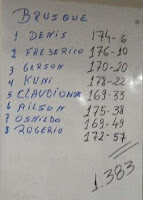 BRUSQUE
1 DENIS 174-6
2 FREDERICO 176-10
3 GERSON 170-20
4 KUNI 178-22
5 CLAUDIONR 169-33
6 AILSON 175-38
7 OSNILDO 169-49
8 ROGERIO 172-57
1.383